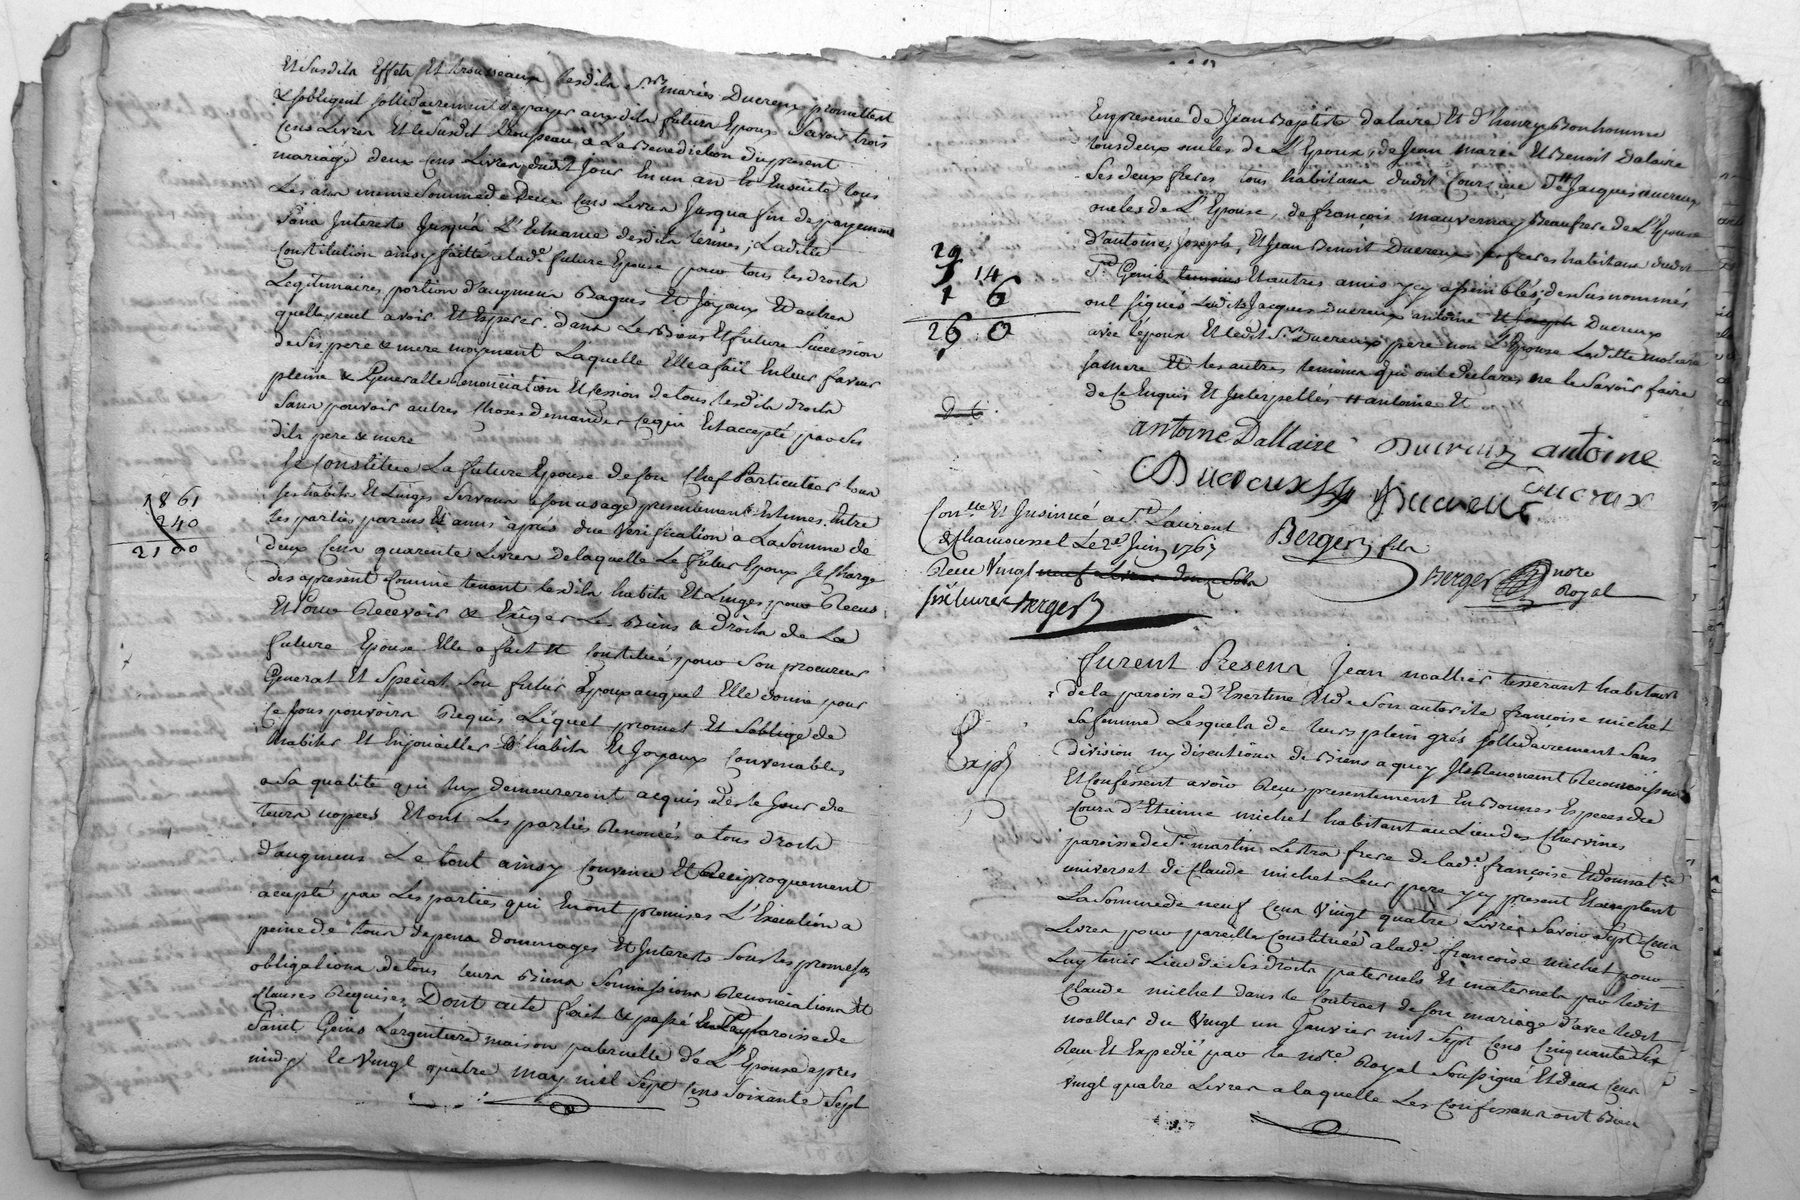 Et Susdits Effets Et trousseaux lesdits Srs mariés Ducreux promettent
& sobligent sollidairement de payer audits futurs Epoux Savoir trois
Cens Livres Et le Susdit trousseau a La Benediction du present
mariage deux Cens Livres dudit Jour En un an Et Ensuite tous
Les ans meme Somme de Deux Cens Livres Jusqua fin de payement
Sans Interests Jusqu'à L'Echeance desdits termes; Laditte
Constitution ainsy faitte a lade future Epouse pour tous les droits
Legitimaires portion d'augmens Bagues Et Joyaux Et autres
quelle peut avoir Et Esperer dans Les Biens Et future Succession
de Ses pere & mere moyenant Laquelle Elle a fait En leur faveur
pleine & Generalle Renonciation Et Cession de tous lesdits droits
Sans pouvoir autres Choses demander Ce qui Est accepté par ses
dits pere & mere
Se Constitue La future Epouse de Son Chef Particulier tous
ses habits Et Linges Servans a Son usage presentement Estimes Entre
les parties parens Et amis après due Verification à La Somme de
1861
240
2100
deux Cens quarente Livres De laquelle Le futur Epoux Se Charge
des apresent Comme tenant lesdits habits Et Linges pour Recus
Et Pour Recevoir & Exiger Les Biens & droits de La
future Epouse Elle a fait Et Constitué pour Son procureur
General Et Special Son futur Epoux auquel Elle donne pour
Ce tous pouvoirs Requis Lequel promet Et Soblige de
habiter Et Enjouailler D'habits Et Joyaux Convenables
a Sa qualité qui luy demeureront acquis dès le Jour de
leurs nopces Et ont Les parties Renoncés a tous droits
d'augmens Le tout ainsy Convenu Et Reciproquement
accepté par Les parties qui En ont promises L'Execution a
peine de tous depens dommages Et Interests Sous les promesses
obligations de tous leurs Biens Soumissions Renonciations Et
Clauses Requises, Dont acte fait & passé En lad. paroisse de
Saint Genis Largentiere maison paternelle de L'Epouse apres
midy le Vingt quatre may mil Sept Cens Soixante Sept
En presence de Jean Baptiste dalaire Et d'henry Bonhomme
tous deux oncles de L'Epoux, de Jean marie Et Benoit Dalaire
Ses deux freres tous habitans dudit Jacques ducreux
oncles de L'Epouse, de françois mauvernay Beaufrere de L'Epouse
d'antoine, Joseph, Et Jean Benoit Ducreux ses freres habitans dudit
St Genis temoins Et autres amis y cy assemblés; des Susnommés
ont signés Ledits Jacques Ducreux antoine Et Joseph Ducreux
avec l'epoux Et ledit Sr Ducreux pere non L'Epouse Laditte
sa mere Et les autres temoins qui ont declarés ne le Savoir faire
de Ce Enquis Et Interpellés antoine Et
19
7 14
6
26 0
antoine Dallaire Ducreux antoine
Ducreux Ducreux Ducreux
Berger fils
Berger nore
Royal
Conlle Et Insinué a St Laurent
de Chamousset Le 2e Juin 1767
Recu Vingt neuf Livres douze Sols
six livres Berger
furent Presens Jean noallier tisserant habitant
de la paroisse d'Essertine Et de Son autorité françoise michet
Sa femme Lesquels de leurs plein grés sollidairement Sans
Exp
division ny discutions de Biens a quoy Ils Renoncent Reconnoissent
Et Confessent avoir Recu presentement En Bonnes Especes de
Cours d'Etienne michet habitant au Lieu des Chervines
paroisse de St martin Lestra frere de lade françoise Et donnatre
universel de Claude michet Leur pere y cy present Et acceptant
La Somme de neuf Cens Vingt quatre Livres Savoir Sept Cens
Livres pour pareille Constituée a lade françoise michet pour
Luy tenir Lieu de Ses droits paternels Et maternels par ledit
Claude michet dans le Contract de Son mariage d'avec ledit
noallier du Vingt un Janvier mil Sept Cens Cinquante Six
Recu Et Expedié par le nore Royal Soussigné Et deux Cens
vingt quatre Livres a laquelle Les Confessans ont Bien